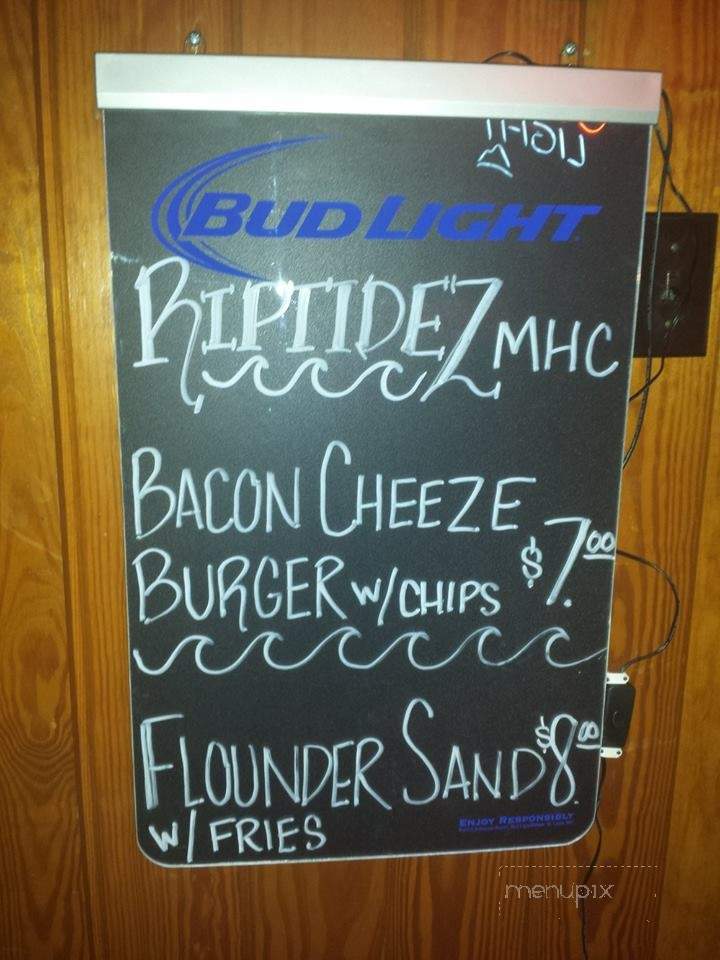 BUD LIGHT
RIPTIDEZ MHC
BACON CHEEZE
BURGER W/CHIPS $7.00
FLOUNDER SAND $8.00
W/ FRIES
ENJOY RESPONSIBLY
menupix